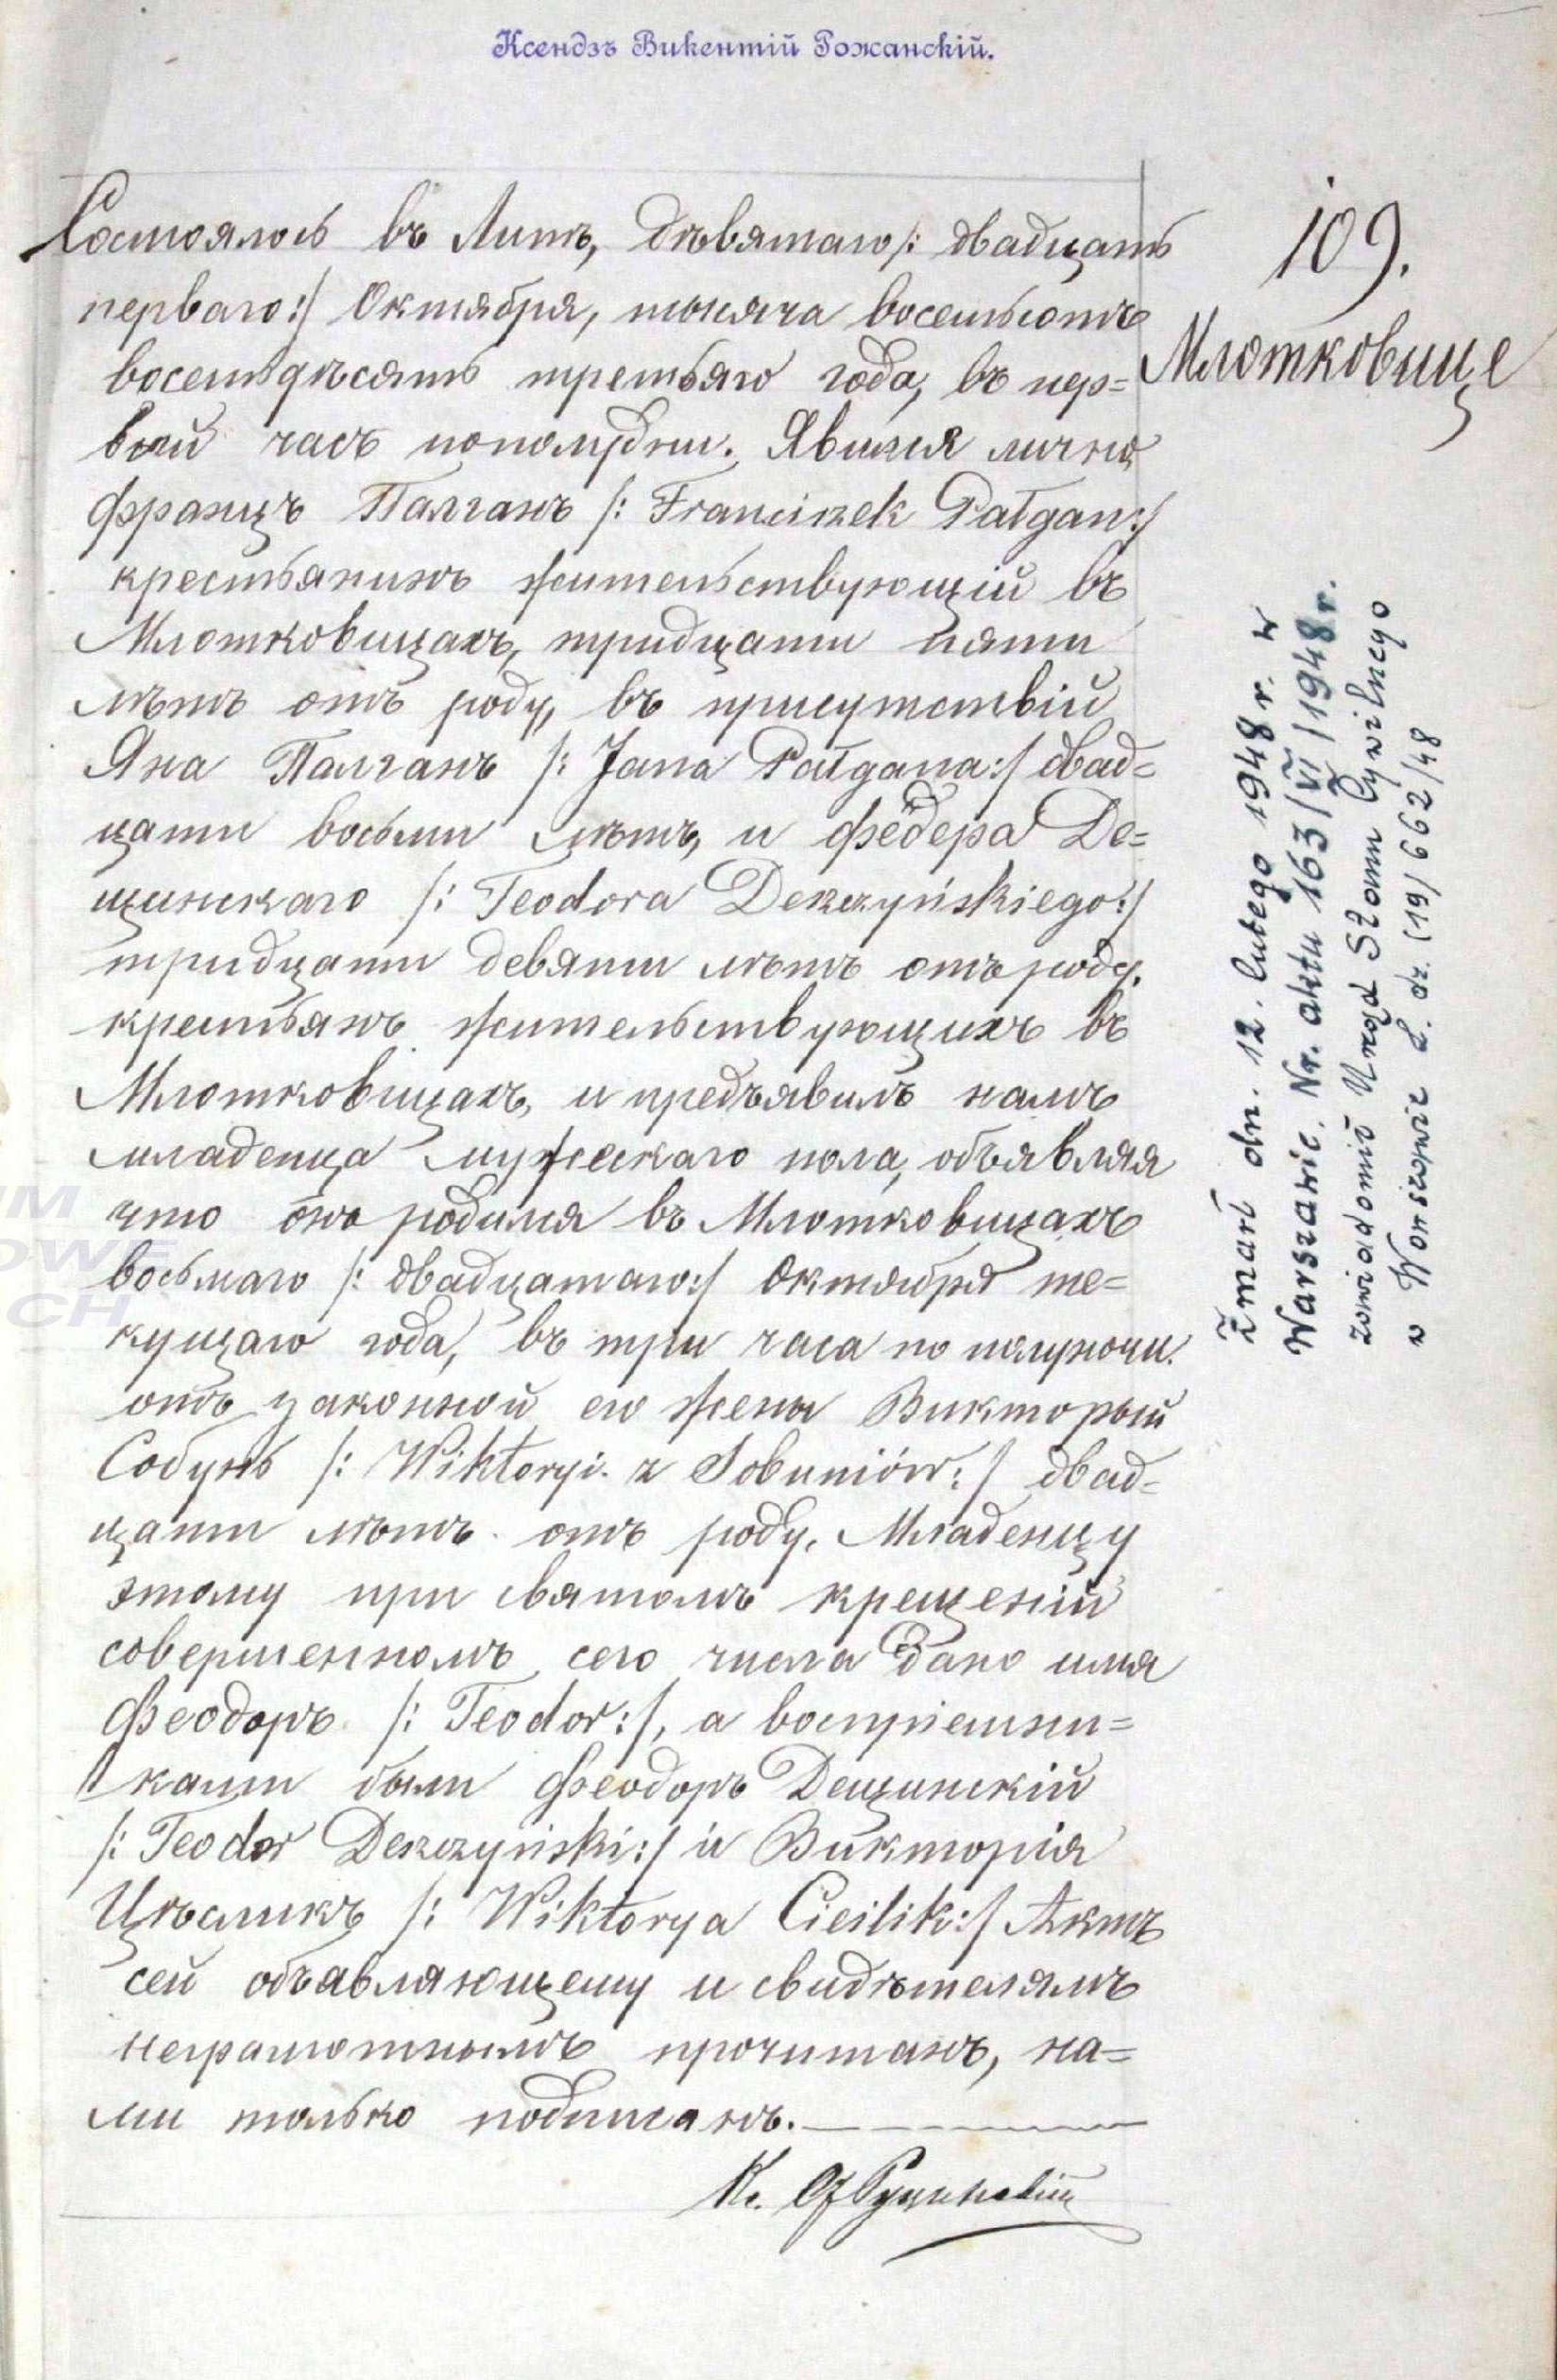 Ксендзъ Викентій Рожанскій.
109.
Млотковице
Состоялось въ Липѣ, дѣвятаго /: двадцать
перваго :/ Октября, тысяча восемьсотъ
восемьдѣсятъ третьяго года, въ пер=
вый часъ пополудни. Явился лично,
Францъ Палганъ /: Franciszek Pałgan :/
крестьянинъ жительствующій въ
Млотковицахъ, тридцати пяти
лѣтъ отъ роду, въ присутствій
Яна Палганъ /: Jana Pałgana :/ двад=
цати восьми лѣтъ, и Фёдера Де=
щинскаго /: Teodora Deszczyńskiego :/
тридцати девяти лѣтъ отъ роду,
крестьянъ жительствующихъ въ
Млотковицахъ, и предъявилъ намъ
младенца мужескаго пола, объявляя
что оно родился въ Млотковицахъ
восьмаго /: двадцатаго :/ Октября те=
кущаго года, въ три часа по полуночи.
отъ законной его жены Викторый
Собунь /: Wiktoryi z Sobuniów :/ двад=
цати лѣтъ отъ роду. Младенцу
этому при святомъ крещеній
совершенномъ сего числа дано имя
Феодоръ /: Teodor :/, а воспріемни=
ками были Феодоръ Дещинскій
/: Teodor Deszczyński :/ и Викторія
Цѣсликъ /: Wiktorya Cieślik :/ Актъ
сей объавляющему и свидѣтелямъ
неграмотнымъ прочитанъ, на=
ми только подписанъ.
Кс.
Zmarł dn. 12. lutego 1948 r. w
Warszawie. Nr. aktu 163/VI/1948 r.
zawiadomił Urząd Stanu Cywilnego
w Warszawie L. dz. (19/662/48